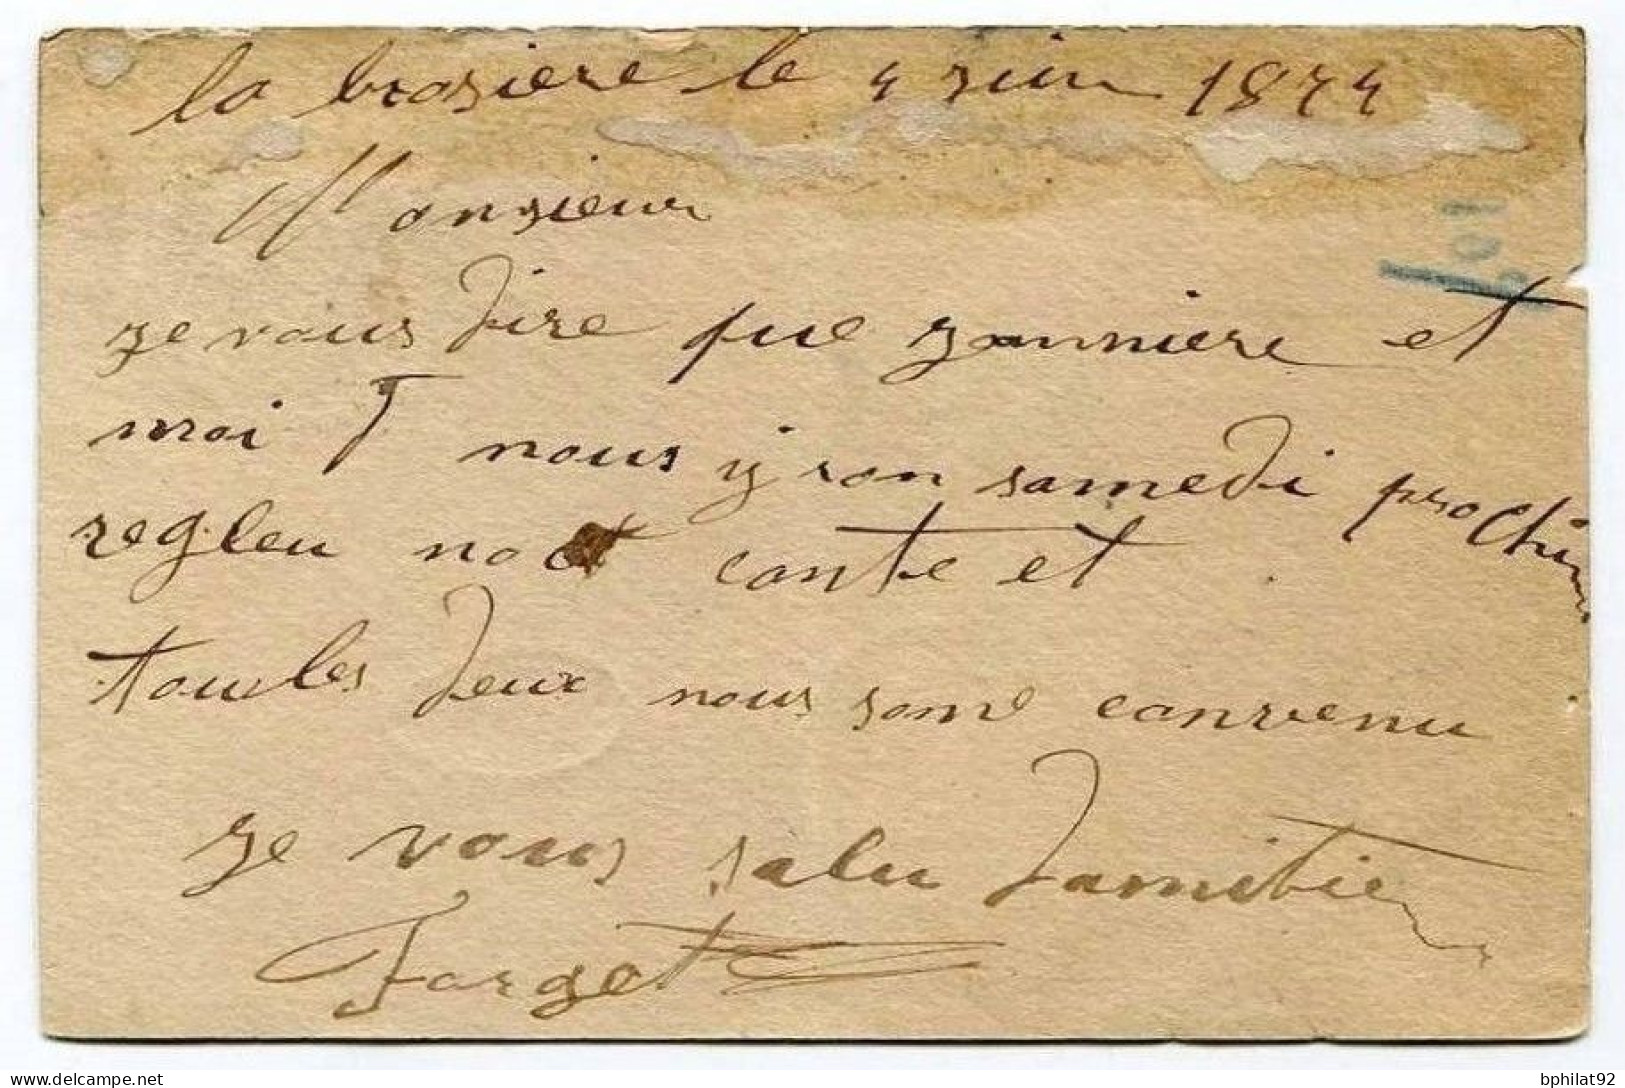 la brosiere le 4 juin 1874
Monsieur
je vous dire que jonniere et
moi nous y ron samedi prochin
regleu not conte et
toules deux nous some convenu
je vous salu damitie
Farget
bphilat92